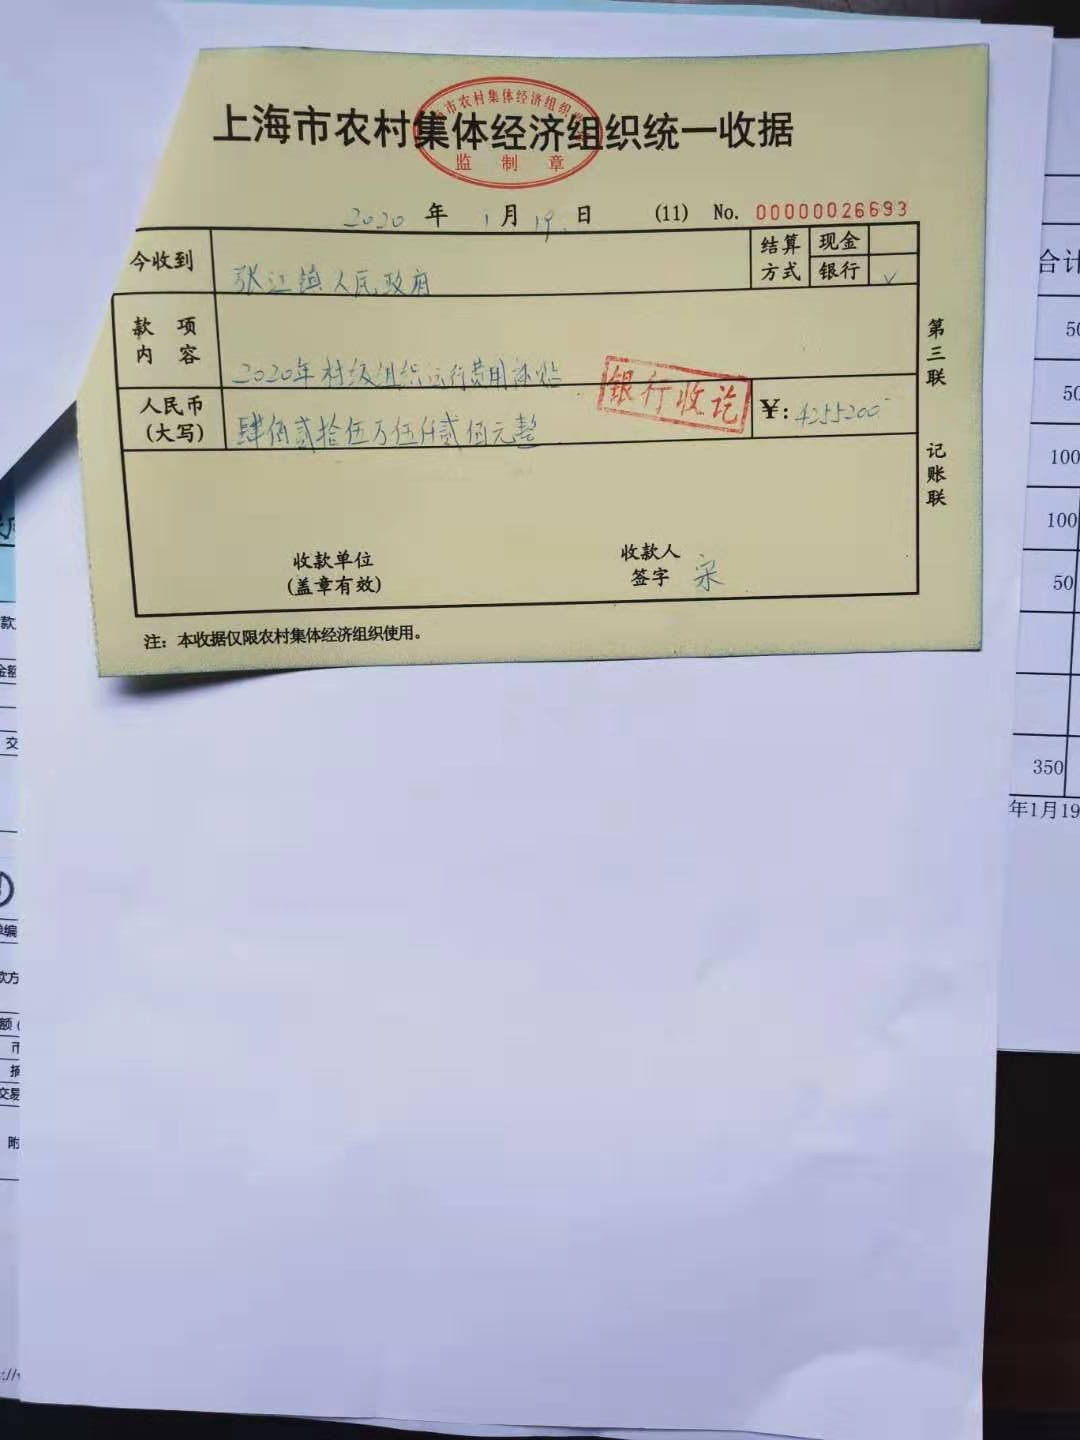 上海市农村集体经济组织统一收据
市农村集体经济组织收
监 制 章
2020 年 1 月 19 日 (11) No. 00000026693
今收到 张江镇人民政府
结算方式 现金
银行 √
款项内容 2020年村级组织运行费用补贴
银行收讫
人民币(大写) 肆佰贰拾伍万伍仟贰佰元整 ¥: 4255200
第三联 记账联
收款单位(盖章有效)
收款人签字 宋
注: 本收据仅限农村集体经济组织使用。
合计
50
50
100
100
50
350
年1月19
款
金额
交
单编
款方
额(
币
摘
交易
附